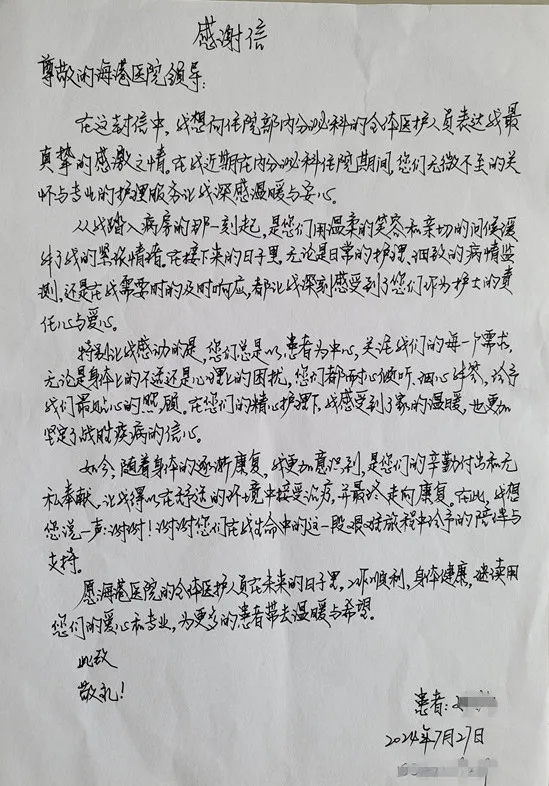 感谢信
尊敬的海港医院领导:
在这封信中,我想向住院部内分泌科的全体医护人员表达我最
真挚的感激之情。在我近期在内分泌科住院期间,您们无微不至的关
怀与专业的护理服务让我深感温暖与安心。
从我踏入病房的那一刻起,是您们用温柔的笑容和亲切的问候缓
解了我的紧张情绪。在接下来的日子里,无论是日常的护理、细致的病情监
测,还是在我需要时的及时响应,都让我深刻感受到了您们作为护士的责
任心与爱心。
特别让我感动的是,您们总是以患者为中心,关注我们的每一个需求,
无论是身体上的不适还是心理上的困扰,您们都耐心倾听、细心解答,给予
我们最贴心的照顾。在您们的精心护理下,我感受到了家的温暖,也更加
坚定了战胜疾病的信心。
如今,随着身体的逐渐康复,我更加意识到,是您们的辛勤付出和无
私奉献,让我得以在舒适的环境中接受治疗,并最终走向康复。在此,我想
您说一声:谢谢!谢谢您们在我生命中的这一段艰难旅程中给予的陪伴与
支持。
愿海港医院的全体医护人员在未来的日子里,工作顺利,身体健康,继续用
您们的爱心和专业,为更多的患者带去温暖与希望。
此致
敬礼!
患者:
2024年7月27日